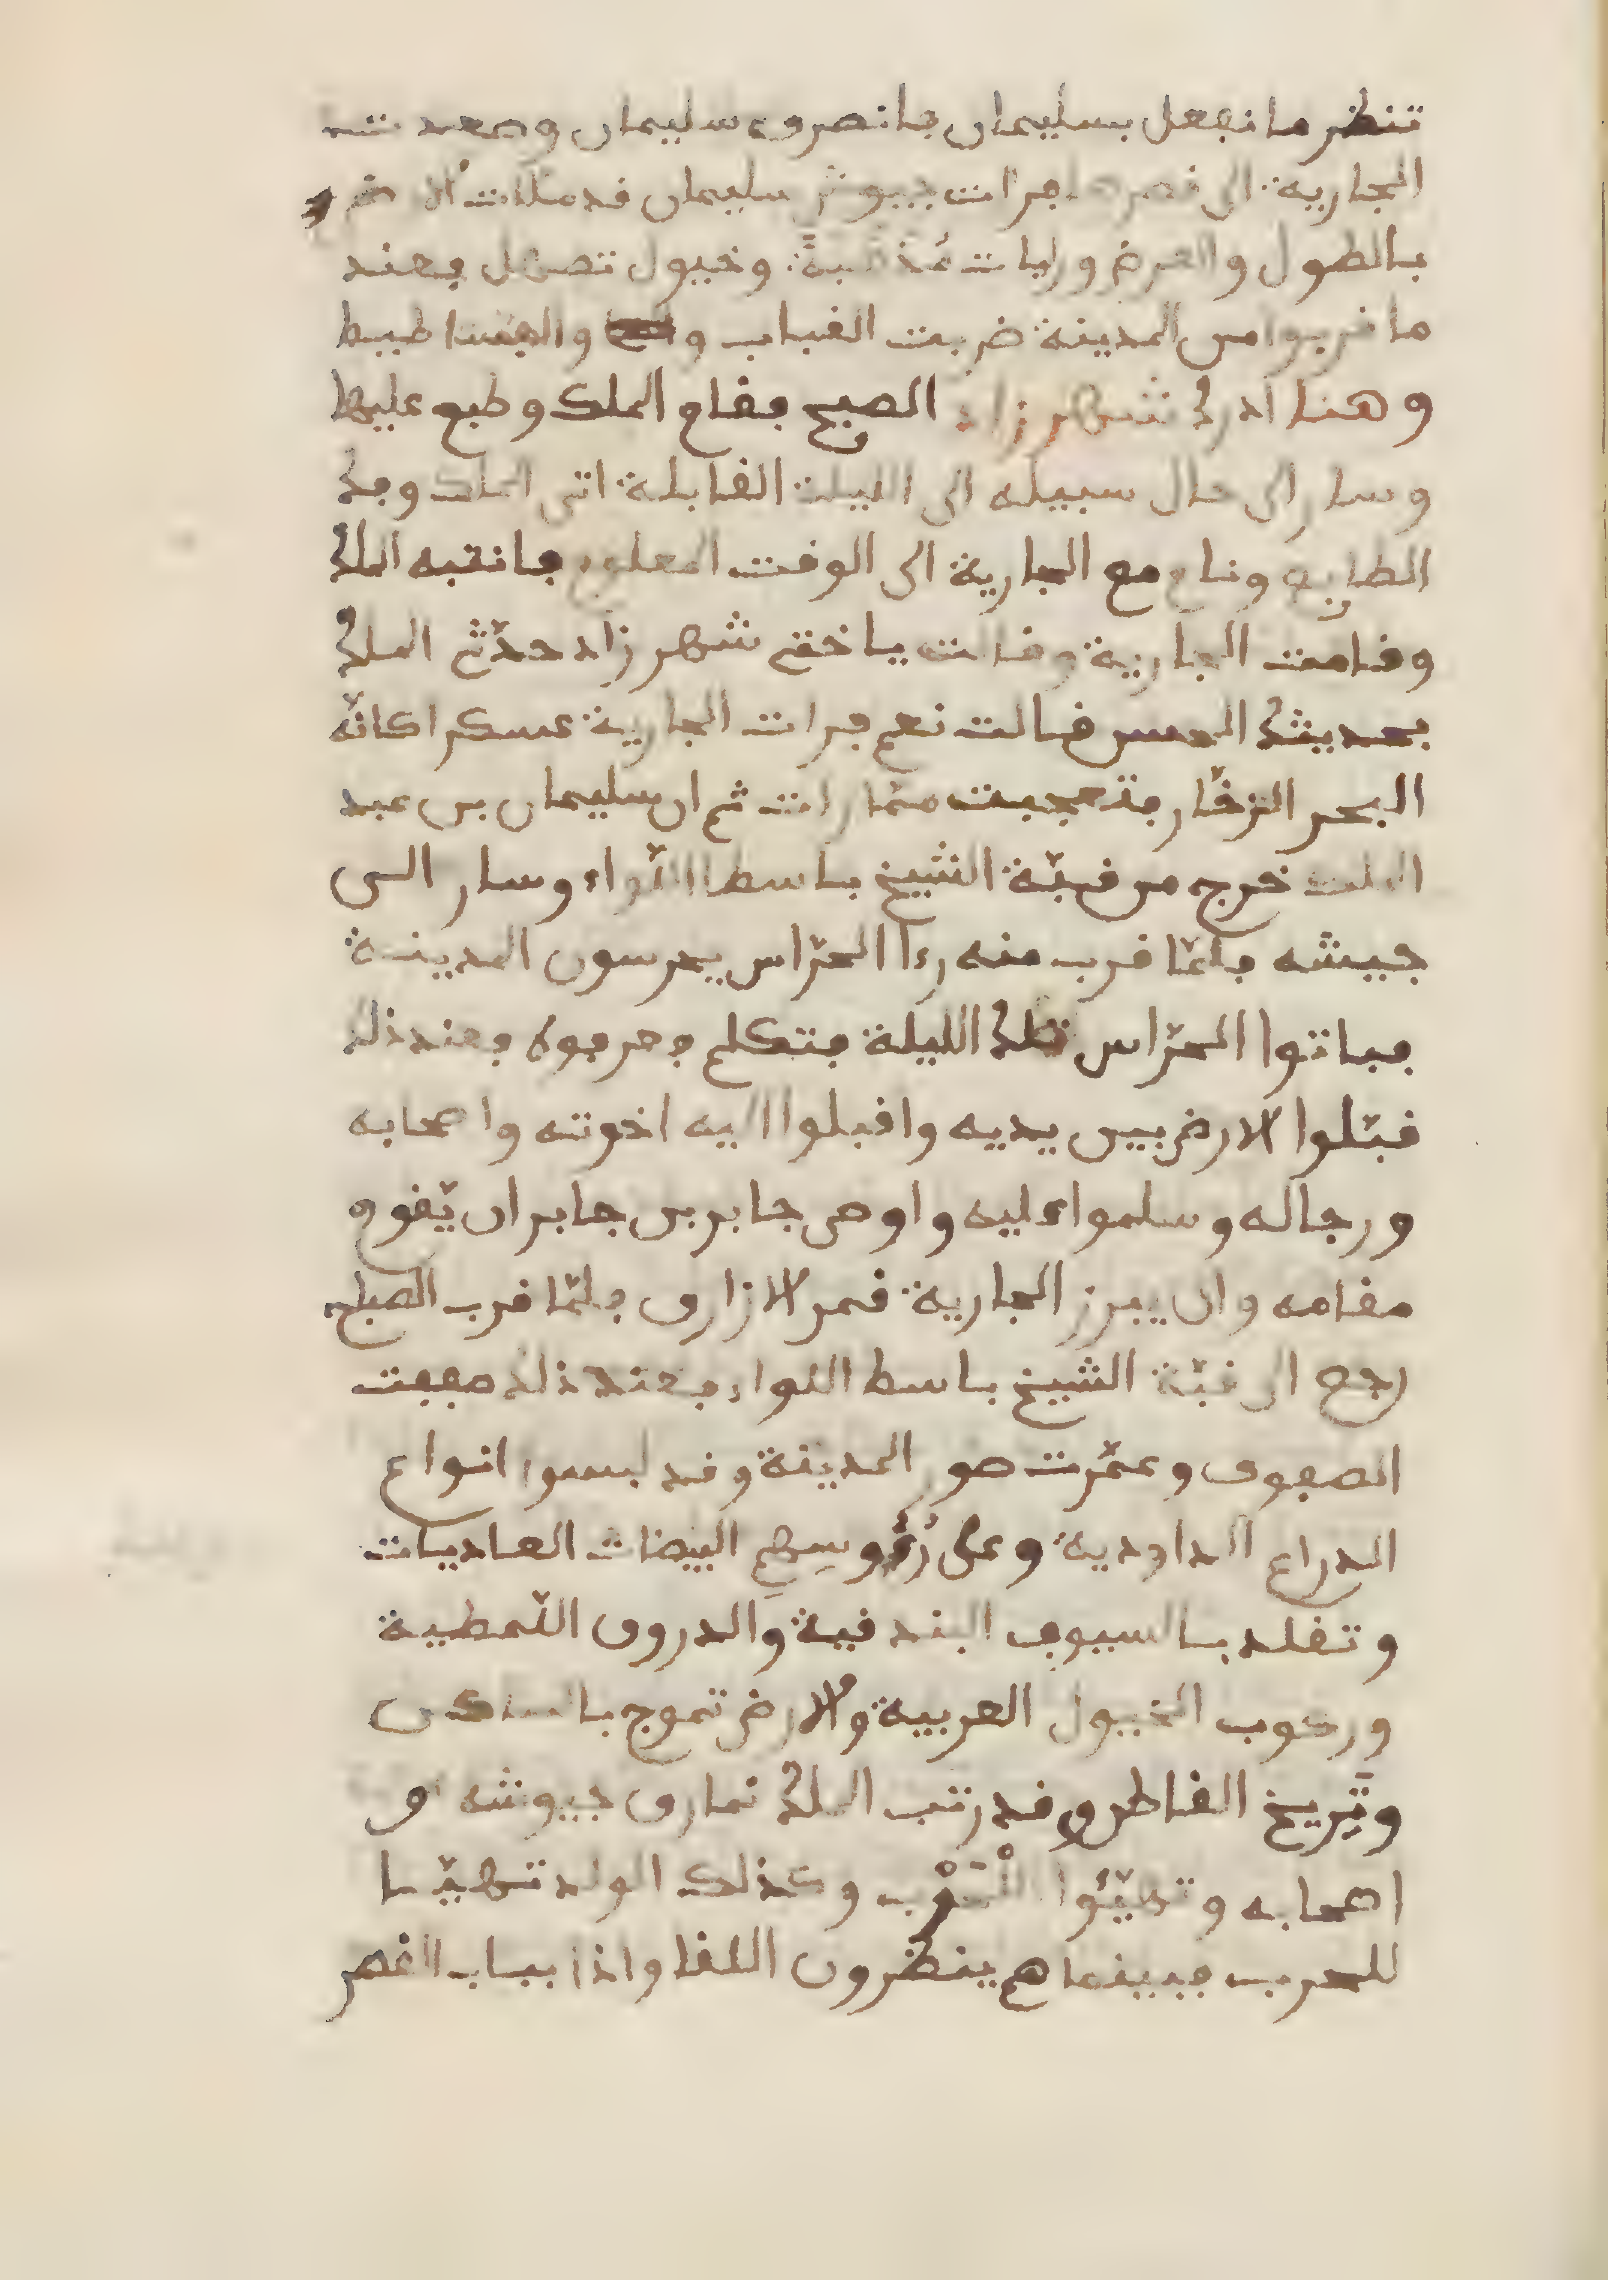 تنظر ما نفعل بسليمان فانصرف سليمان وصعدت
الجارية الى قصرها فرات جيوش سليمان قد ملات الارض
بالطول والعرض ورايات مُذهّبةً وخيول تصهل فعند
ما قربوا من المدينة ضربت القباب والفساطيط
وهنا ادرك شهرزاد الصبح فقام الملك وطبع عليها
وسار الى حال سبيله الى الليلة القابلة اتى الملك وفك
الطابع ونام مع الجارية الى الوقت المعلوم فانتبه الملك
وقامت الجارية وقالت ياختي شهرزاد حدّثي الملك
بحديثك الحسن فقالت نعم فرات الجارية عسكرا كانّه
البحر الزخّار فتعجبت ممّا رات ثم ان سليمان بن عبد
الملك خرج من قبّة الشيخ باسط اللّواء وسار الى
جيشه فلمّا قرب منه رءا الحرّاس يحرسون المدينة
فباتوا الحرّاس تلك الليلة فتكلم فعرفوه فعند ذلك
قبّلوا الارض بين يديه واقبلوا اليه اخوته واصحابه
ورجاله وسلموا عليه واوصى جابر بن جابر ان يّقوم
مقامه وان يبرز الجارية قمر الازارق فلمّا قرب الصباح
رجع الى قبّة الشيخ باسط اللواء فعند ذلك صففت
الصفوف وعمّرت صور المدينة وقد لبسوا انواع
الدراع الداودية وعلى رُءُوسِهِم البيضات العاديات
وتقلد بالسيوف البندقية والدروق اللّمطية
وركوب الخيول العربية والارض تموج بالساكن
وتّريخ القاطن وقد رتب الملك نمارق جيوشه و
اصحابه وتهيّئوا للْحَرْب وكذلك الولد تهيّا
للحرب فبينما هم ينظرون اللقا واذا بباب القصر